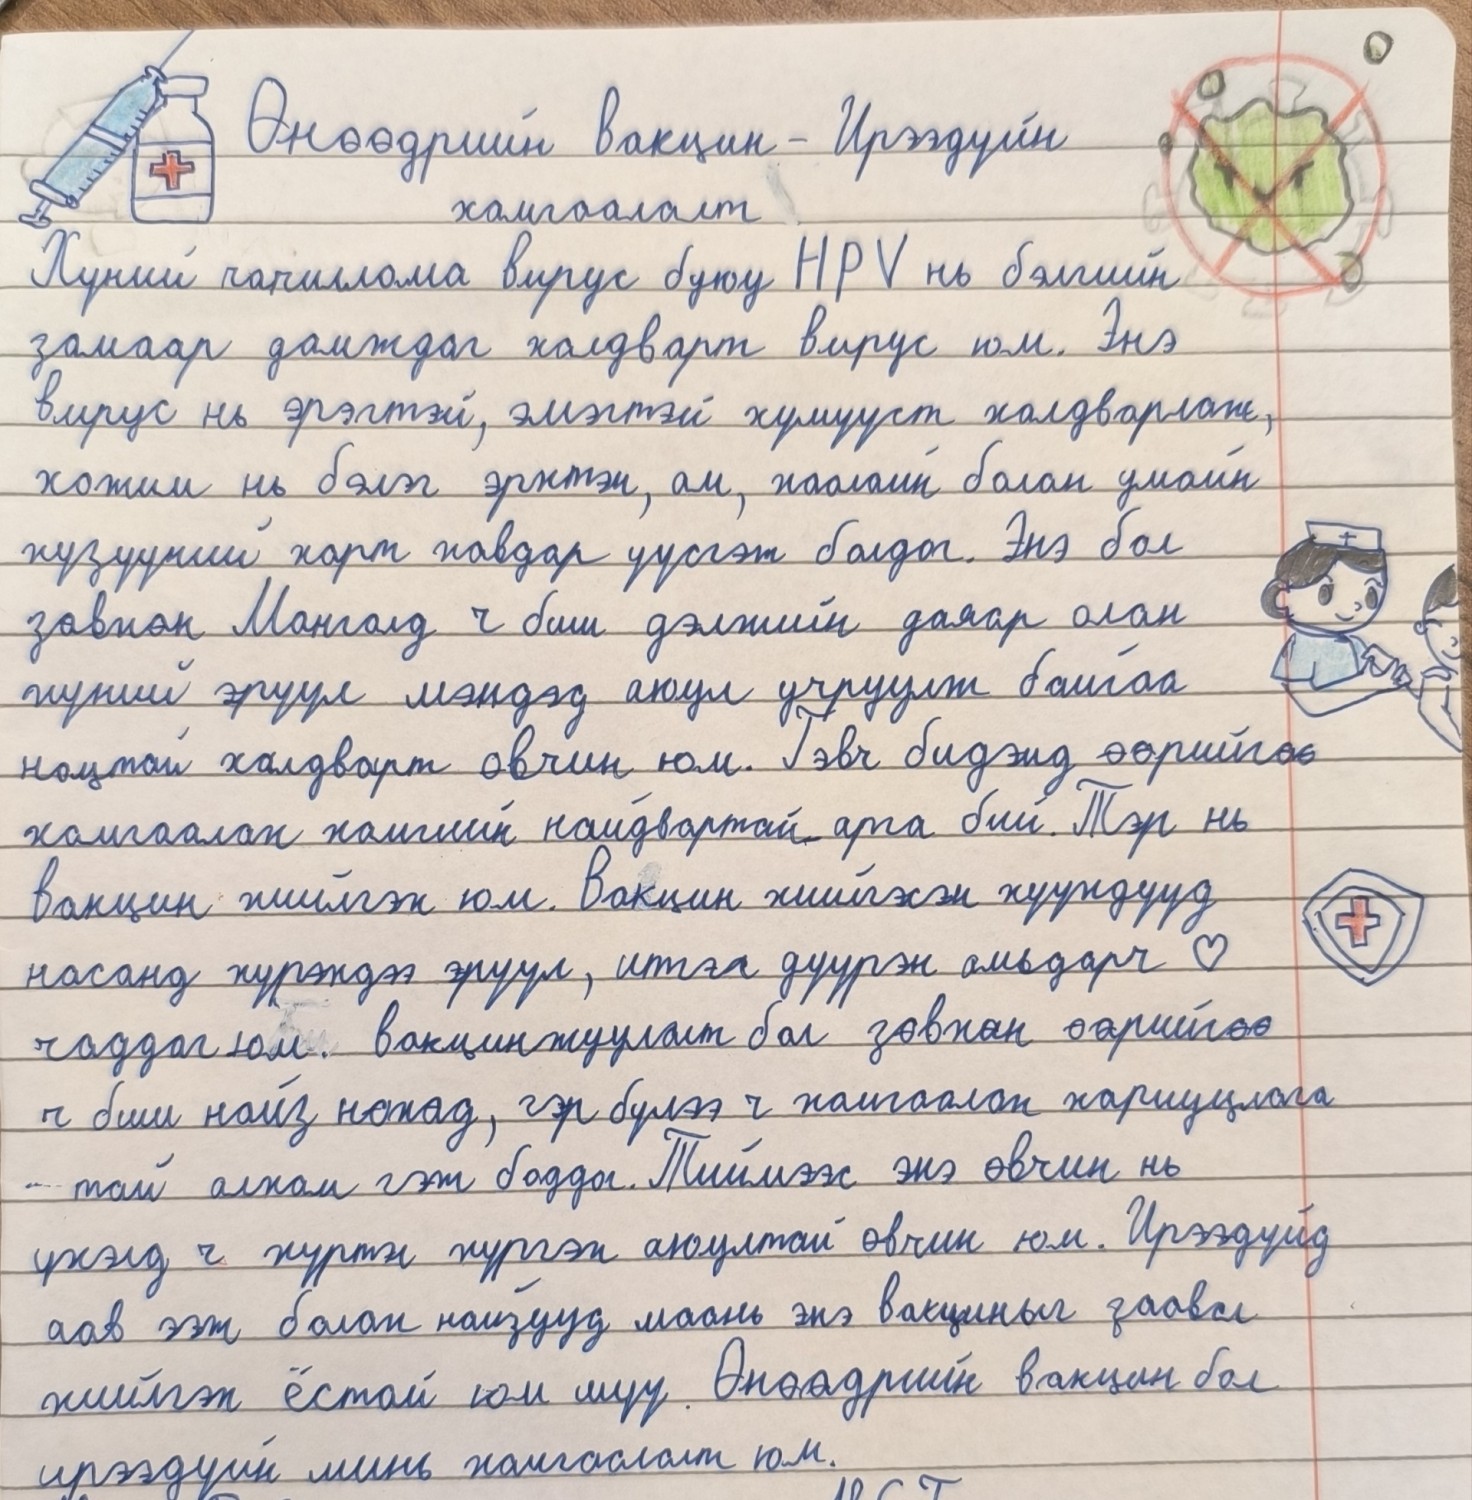 Өнөөдрийн вакцин - Ирээдүйн
хамгаалалт
Хүний папиллома вирус буюу HPV нь бэлгийн
замаар дамждаг халдварт вирус юм. Энэ
вирус нь эрэгтэй, эмэгтэй хүмүүст халдварлаж,
хожим нь бэлэг эрхтэн, ам, хоолойн болон умайн
хүзүүний хорт хавдар үүсгэж болдог. Энэ бол
зөвхөн Монголд ч биш дэлхийн даяар олон
хүний эрүүл мэндэд аюул учруулж байгаа
ноцтой халдварт өвчин юм. Гэвч бидэнд өөрийгөө
хамгаалах хамгийн найдвартай арга бий. Тэр нь
вакцин хийлгэх юм. Вакцин хийлгэсэн хүүхдүүд
насанд хүрэхдээ эрүүл, итгэл дүүрэн амьдарч ♡
чаддаг юм. вакцинжуулалт бол зөвхөн өөрийгөө
ч биш найз нөхөд, гэр бүлээ ч хамгаалах хариуцлага
- тай алхам гэж боддог. Тиймээс энэ өвчин нь
үхэлд ч хүртэл хүргэх аюултай өвчин юм. Ирээдүйд
аав ээж болох найзууд маань энэ вакциныг заавал
хийлгэх ёстой юм шүү. Өнөөдрийн вакцин бол
ирээдүйн минь хамгаалалт юм.